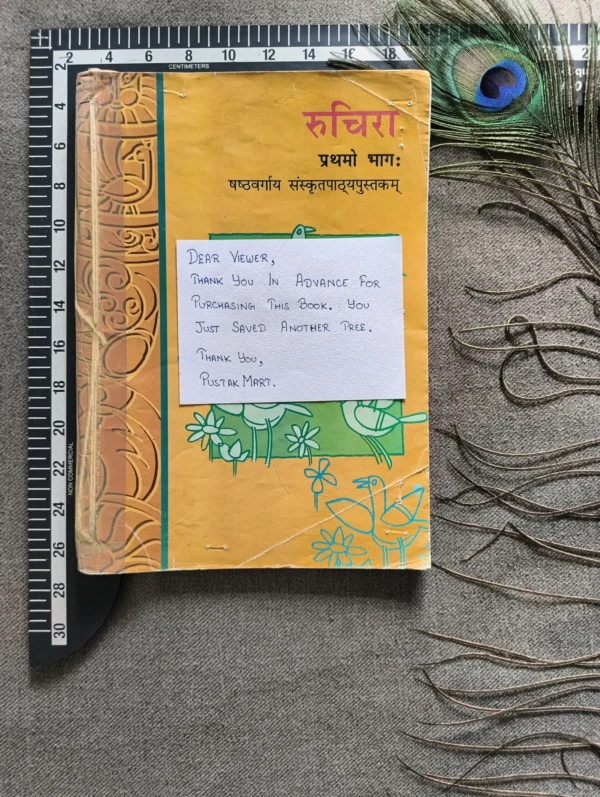 2 4 6 8 10 12 14 16 18
CENTIMETERS
2
4
6
8
10
12
14
16
18
20
22
24
26
28
30
NON COMMERCIAL
रुचिरा
प्रथमो भागः
षष्ठवर्गाय संस्कृतपाठ्यपुस्तकम्
DEAR VIEWER,
THANK YOU IN ADVANCE FOR
PURCHASING THIS BOOK. YOU
JUST SAVED ANOTHER TREE.
THANK YOU,
PUSTAK MART.